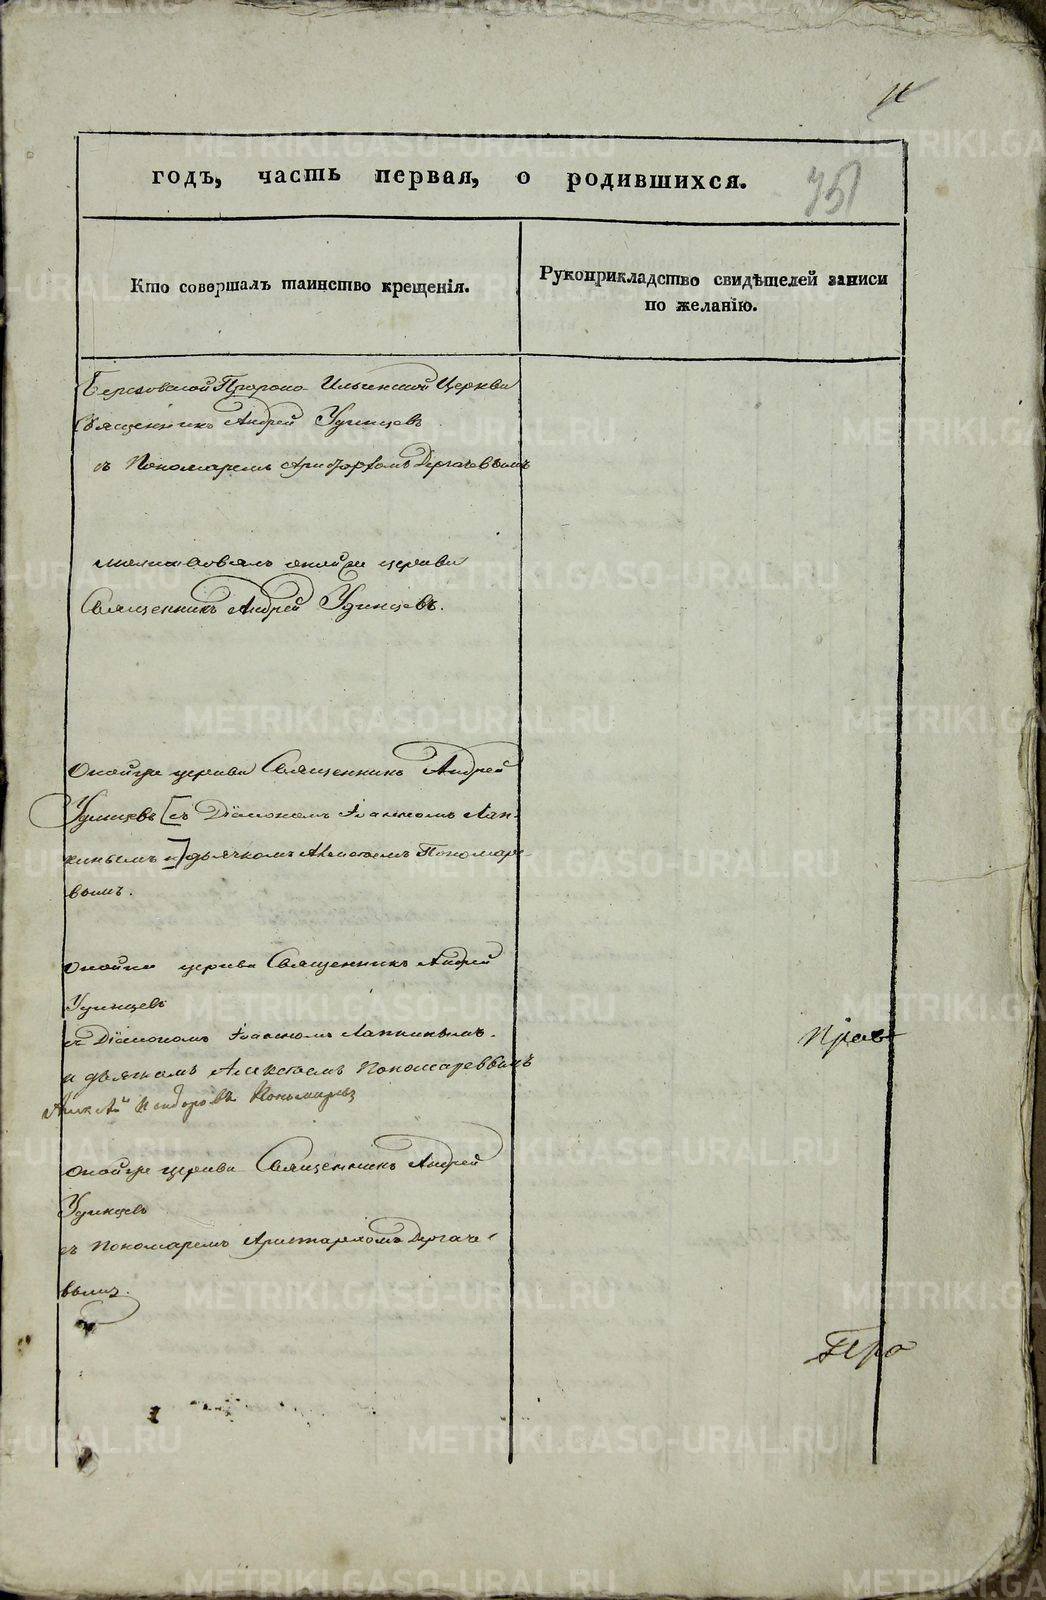 годъ, часть первая, о родившихся.
751
Кто совершалъ таинство крещенія.
Рукоприкладство свидѣтелей записи
по желанію.
Березовской Пророко Ильинской Церкви
Священникъ Андрей Удинцевъ
съ Пономаремъ Аристархомъ Дергачевымъ
церкви
Священникъ Андрей Удинцевъ.
Оной же церкви Священникъ Андрей
Удинцевъ [съ Діакономъ Іоанномъ Лап-
кинымъ и] дьячкомъ Алексѣемъ Пономаре-
вымъ.
Оной же церкви Священникъ Андрей
Удинцевъ
съ Діакономъ Іоанномъ Лапкинымъ
и дьячкомъ Алексѣемъ Пономаревымъ
Пономаревъ
Оной же церкви Священникъ Андрей
Удинцевъ
съ Пономаремъ Аристархомъ Дергаче-
вымъ.
METRIKI.GASO-URAL.RU